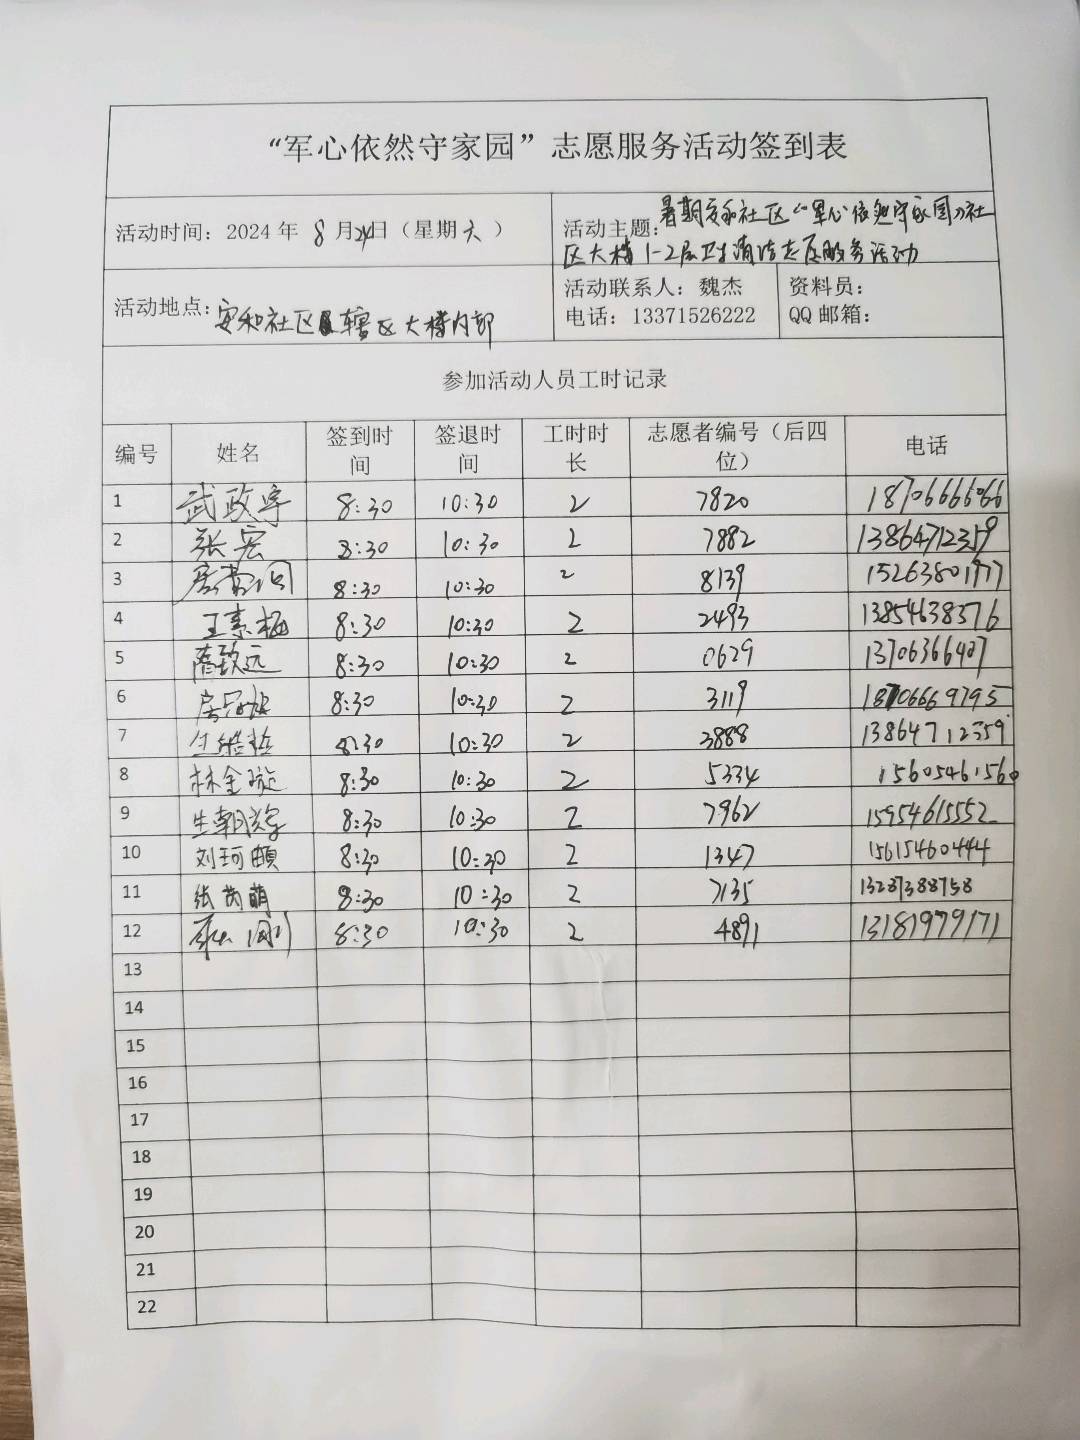 “军心依然守家园”志愿服务活动签到表
活动时间：2024年 8月24日（星期六）
活动主题：暑期安和社区《“军心”依然守家园》社
区大楼1-2层卫生清洁志愿服务活动
活动地点：安和社区辖区大楼内部
活动联系人：魏杰
电话：13371526222
资料员：
QQ邮箱：
参加活动人员工时记录
编号 姓名 签到时间 签退时间 工时时长 志愿者编号（后四位） 电话
1 武政宇 8:30 10:30 2 7820 18706666066
2 张宏 8:30 10:30 2 7882 13864712359
3 8:30 10:30 2 8139 15263801977
4 王素梅 8:30 10:30 2 2493 13854638576
5 隋致远 8:30 10:30 2 0629 13706366407
6 8:30 10:30 2 3119 18706669795
7 8:30 10:30 2 3888 13864712359
8 林金璇 8:30 10:30 2 5334 15605461560
9 8:30 10:30 2 7962 15954615552
10 刘珂頔 8:30 10:30 2 1347 15615460444
11 张芮萌 8:30 10:30 2 7135 13287388758
12 8:30 10:30 2 4891 13181979171
13
14
15
16
17
18
19
20
21
22